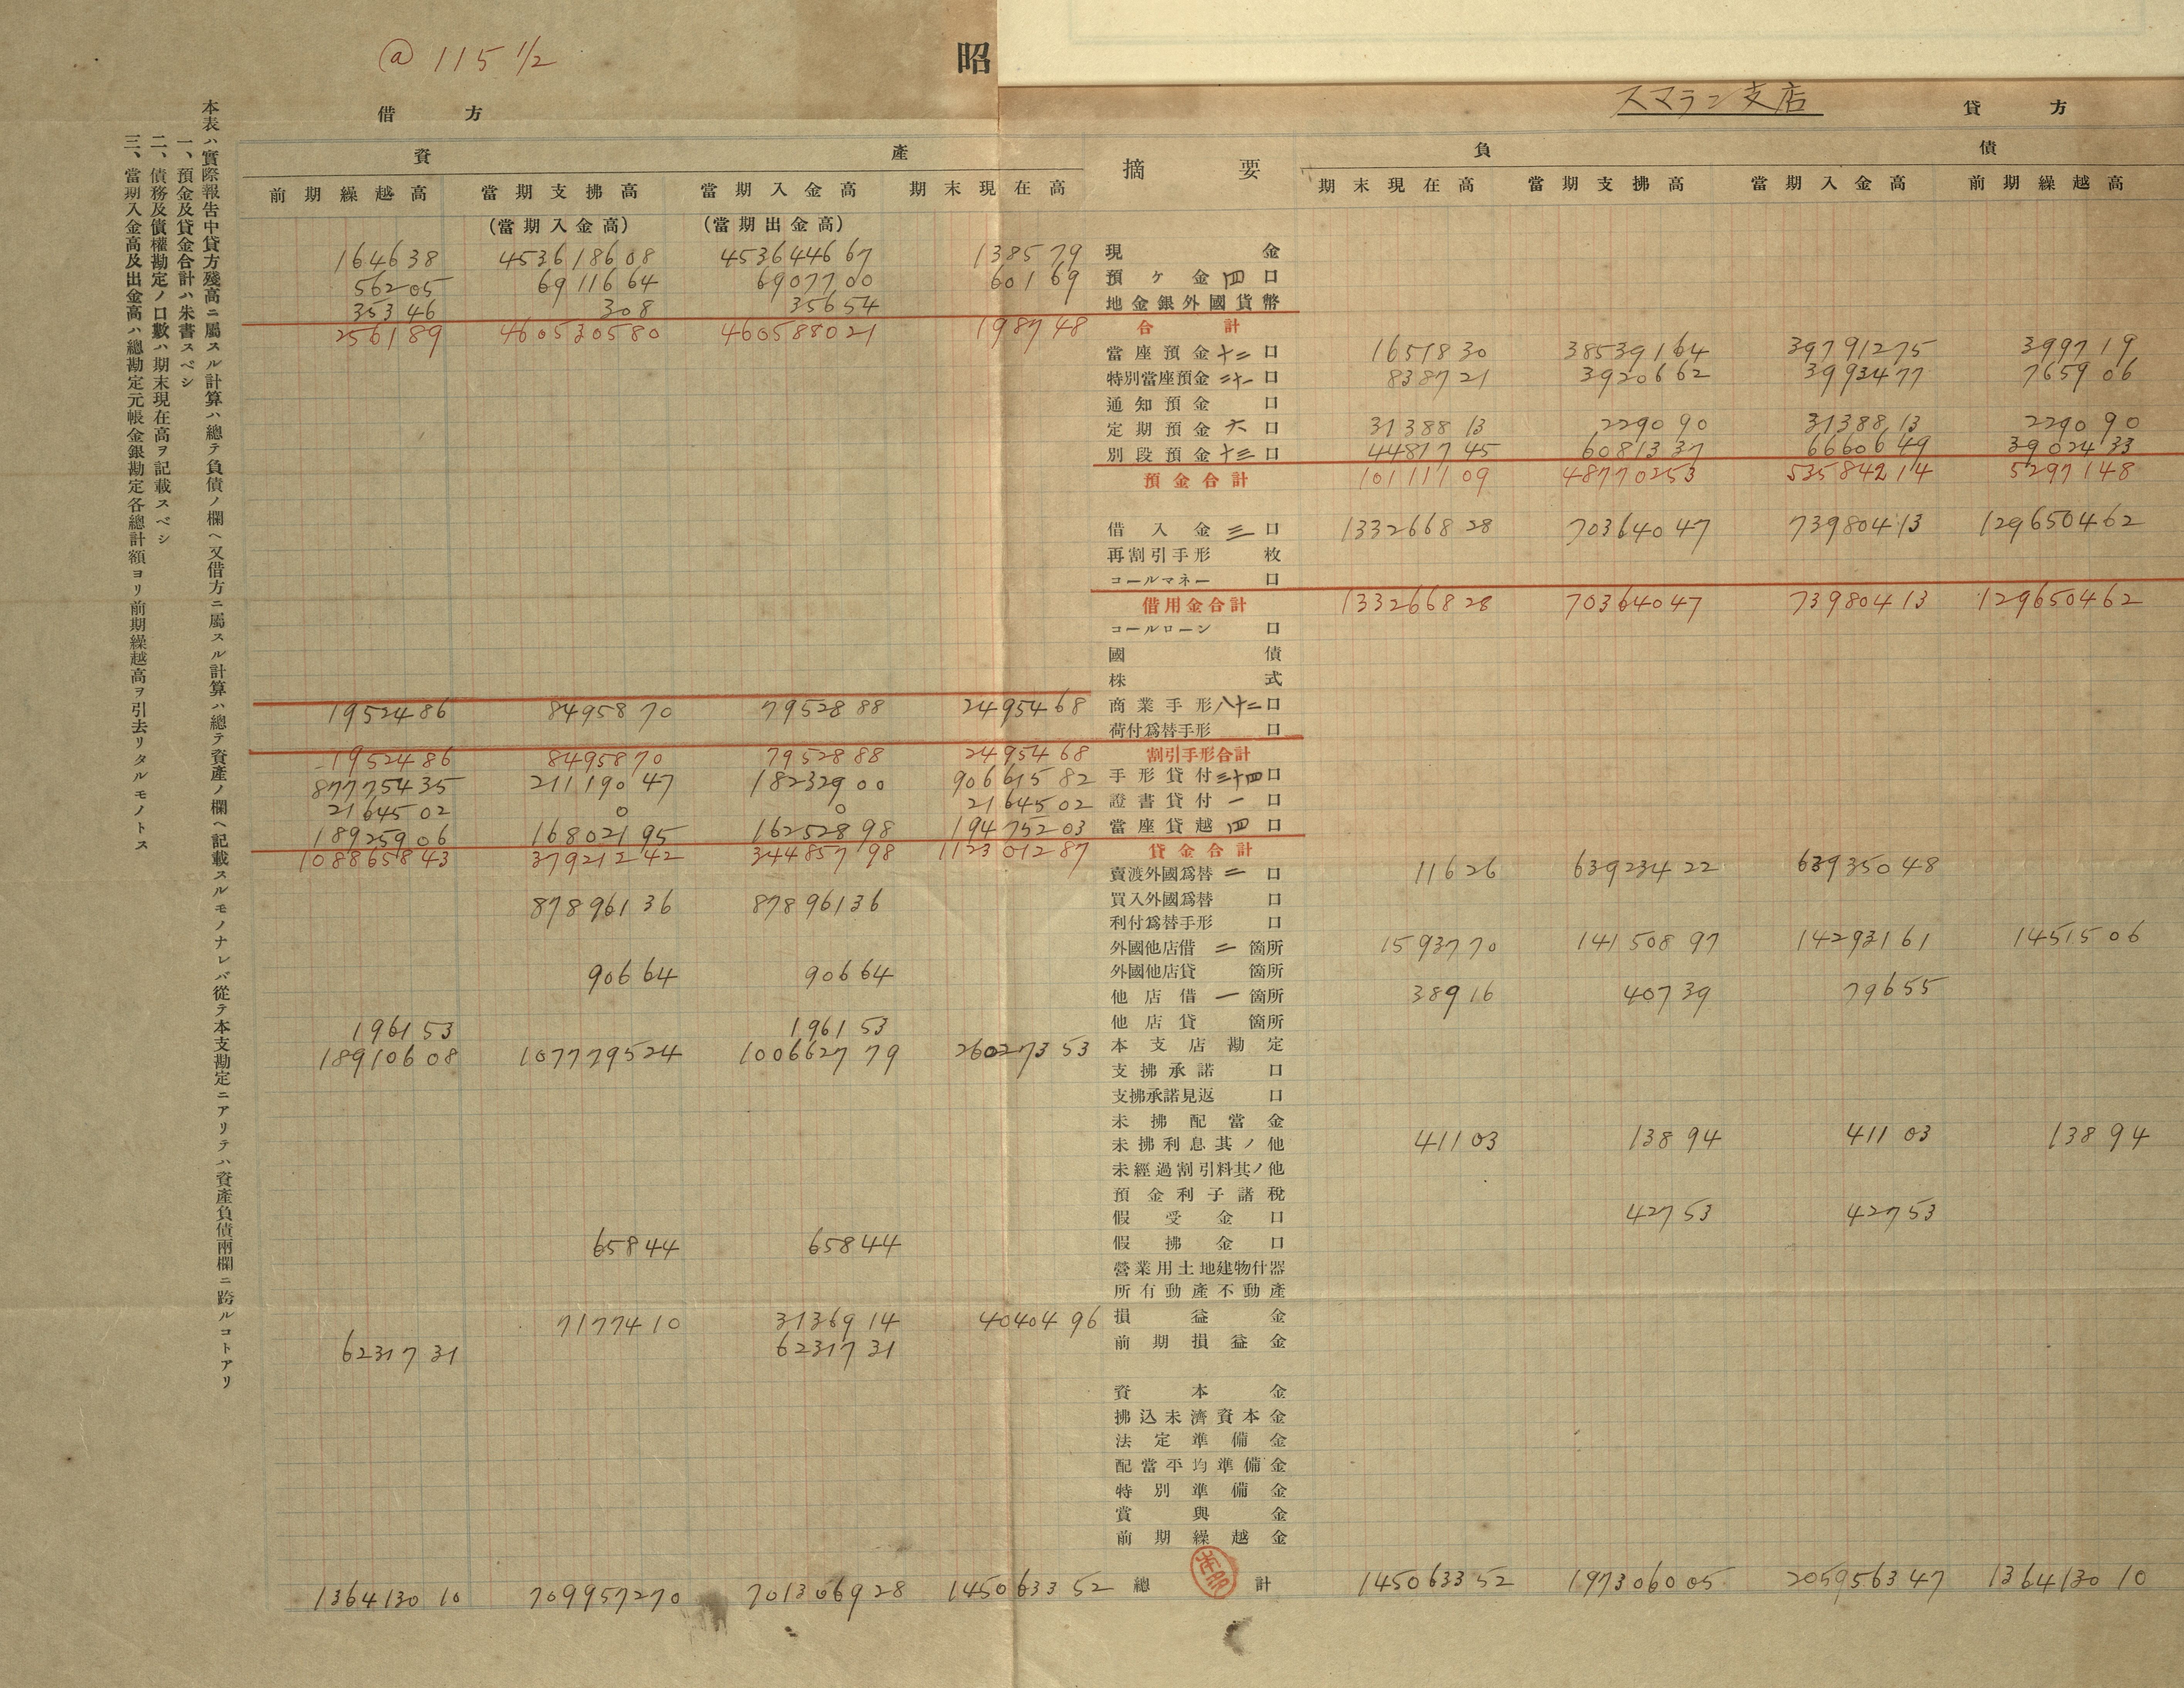 @ 115 1/2
昭
スマラン支店
借方
貸方
資產
摘要
負債
前期繰越高 當期支拂高 當期入金高 期末現在高 期末現在高 當期支拂高 當期入金高 前期繰越高
(當期入金高) (當期出金高)
164638 453618608 453644667 138579 現金
56205 6911664 6907700 60169 預ケ金四口
35346 308 35654 地金銀外國貨幣
256189 460530580 460588021 198748 合計
當座預金十二口 1651830 38539164 39791275 399719
特別當座預金二十一口 838721 3920662 3993477 765906
通知預金口
定期預金六口 3138813 229090 3138813 229090
別段預金十三口 4481745 6081337 6660649 3902433
預金合計 10111109 48770253 53584214 5297148
借入金三口 133266828 70364047 73980413 129650462
再割引手形枚
コールマネー口
借用金合計 133266828 70364047 73980413 129650462
コールローン口
國債
株式
1952486 8495870 7952888 2495468 商業手形八十二口
荷付爲替手形口
1952486 8495870 7952888 2495468 割引手形合計
87775435 21119047 18232900 90661582 手形貸付三十四口
2164502 0 0 2164502 證書貸付一口
18925906 16802195 16252898 19475203 當座貸越四口
108865843 37921242 34485798 112301287 貸金合計
賣渡外國爲替二口 11626 63923422 63935048
87896136 87896136 買入外國爲替口
利付爲替手形口
外國他店借二箇所 1593770 14150897 14293161 1451506
90664 90664 外國他店貸箇所
他店借一箇所 38916 40739 79655
196153 196153 他店貸箇所
18910608 107779524 100662779 26027353 本支店勘定
支拂承諾口
支拂承諾見返口
未拂配當金
未拂利息其ノ他 41103 13894 41103 13894
未經過割引料其ノ他
預金利子諸稅
假受金口 42753 42753
65844 65844 假拂金口
營業用土地建物什器
所有動產不動產
7177410 3136914 4040496 損益金
6231731 6231731 前期損益金
資本金
拂込未濟資本金
法定準備金
配當平均準備金
特別準備金
賞與金
前期繰越金
136413010 709957270 701306928 145063352 總計 145063352 197306005 205956347 136413010
本表ハ實際報告中貸方殘高ニ屬スル計算ハ總テ負債ノ欄ヘ又借方ニ屬スル計算ハ總テ資產ノ欄ヘ記載スルモノナレバ從テ本支勘定ニアリテハ資產負債兩欄ニ跨ルコトアリ
一、預金及貸金合計ハ朱書スベシ
二、債務及債權勘定ノ口數ハ期末現在高ヲ記載スベシ
三、當期入金高及出金高ハ總勘定元帳金銀勘定各總計額ヨリ前期繰越高ヲ引去リタルモノトス